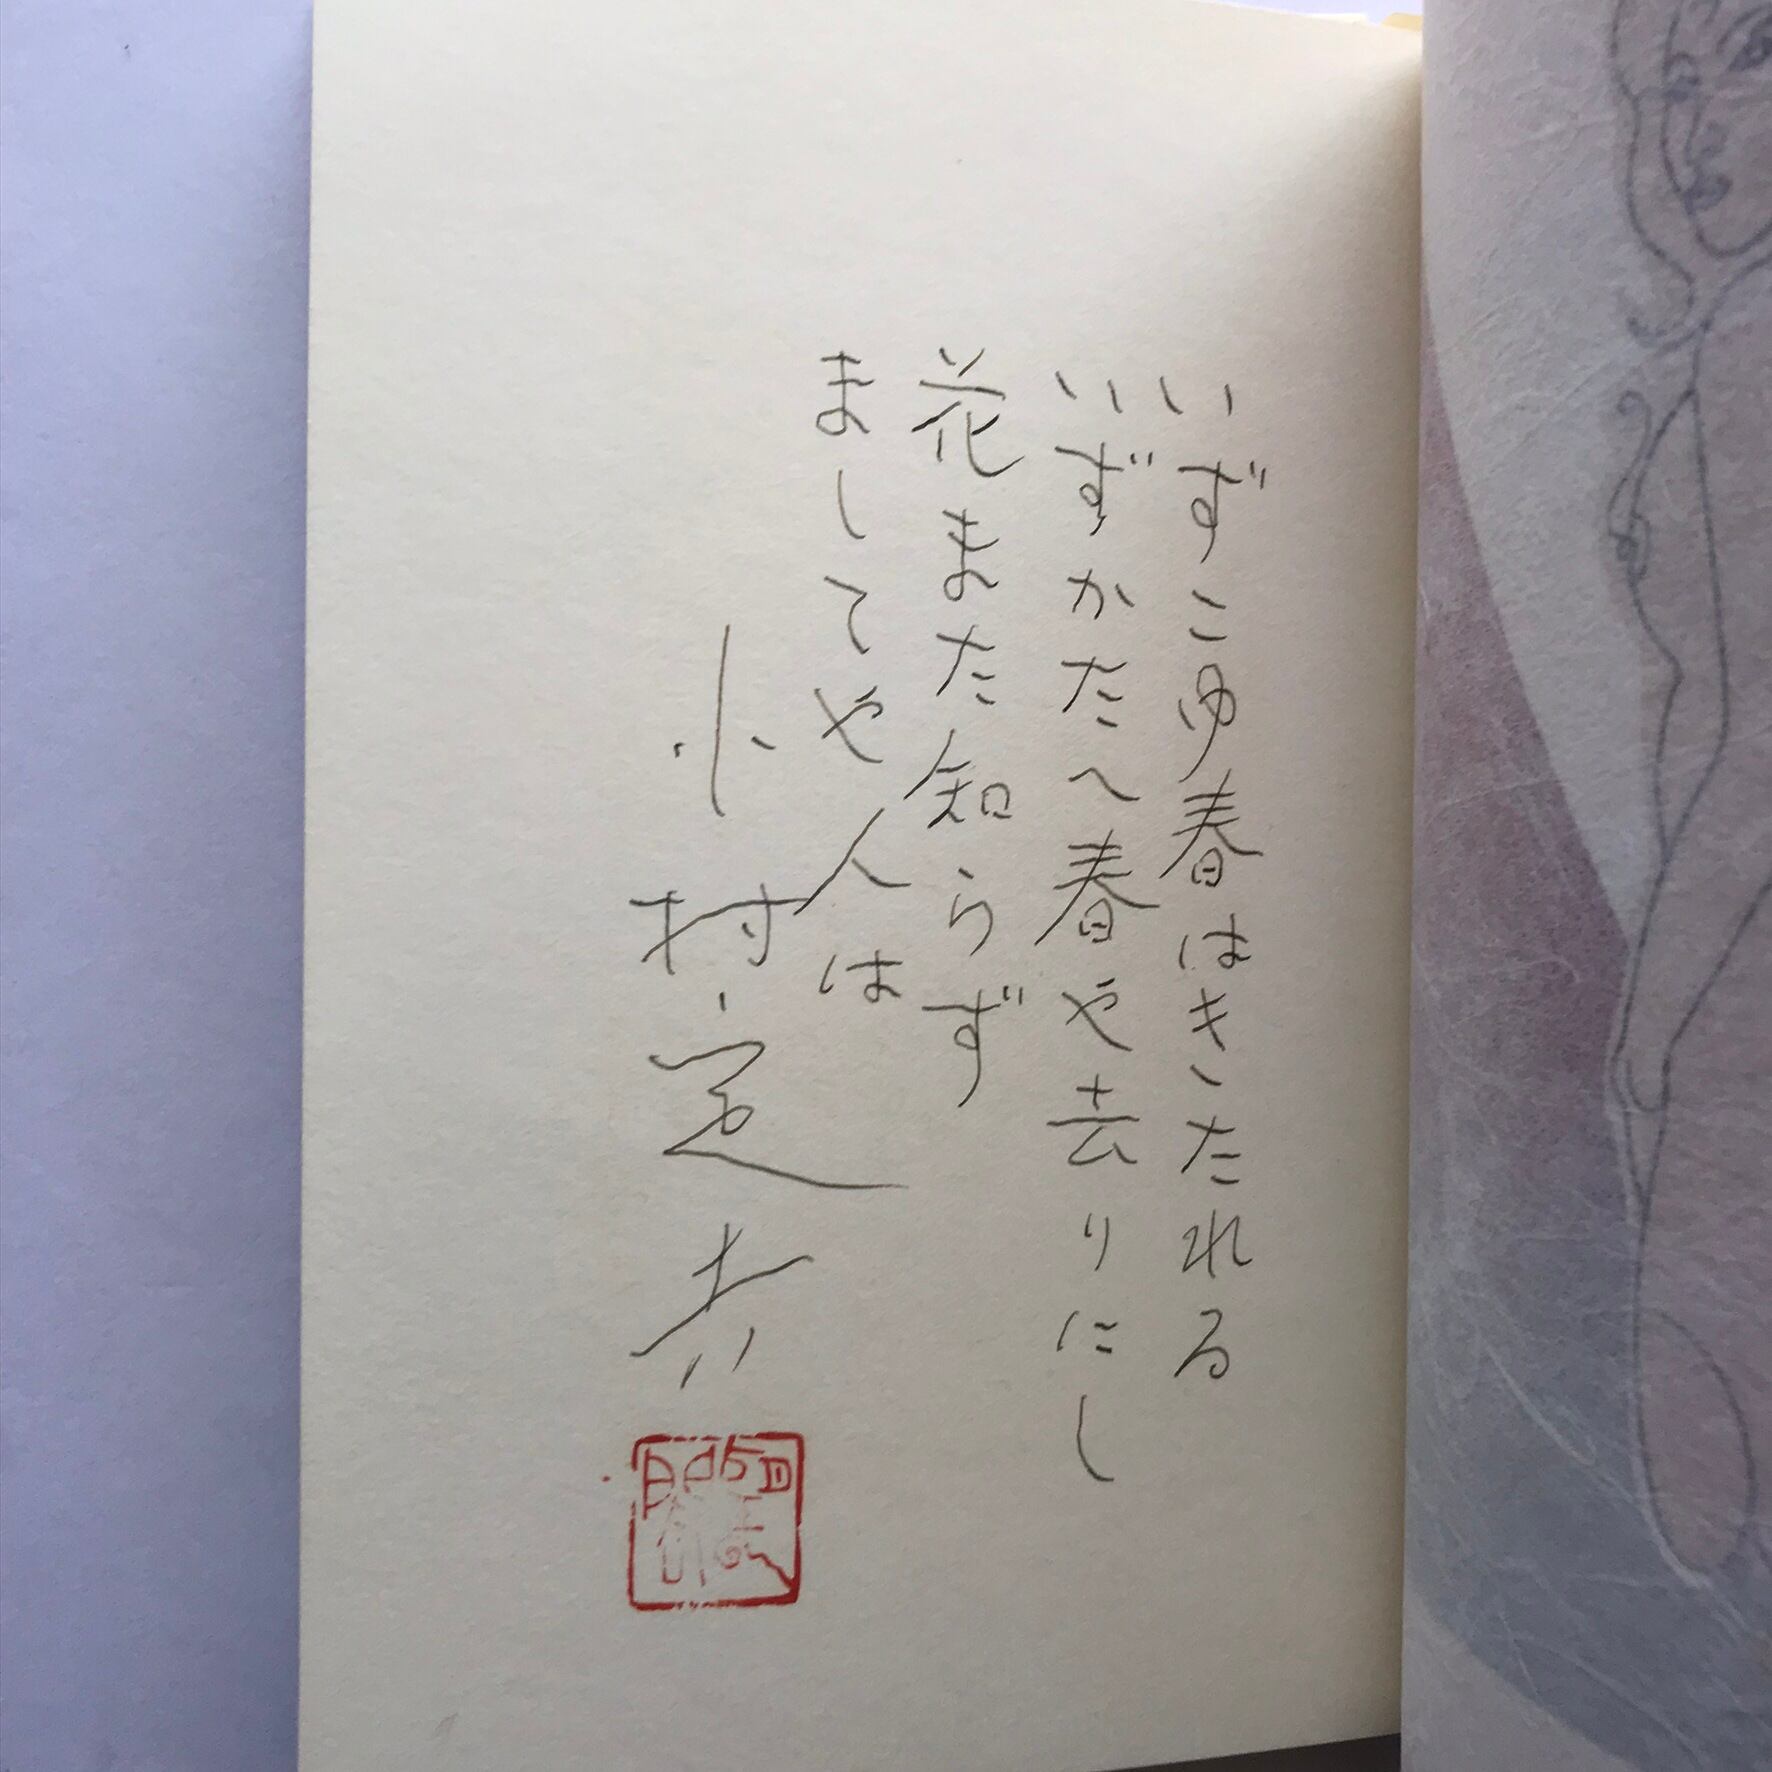 いずこゆ春はきたれる
いずかたへ春や去りにし
花また知らず
ましてや人は
小村定吉